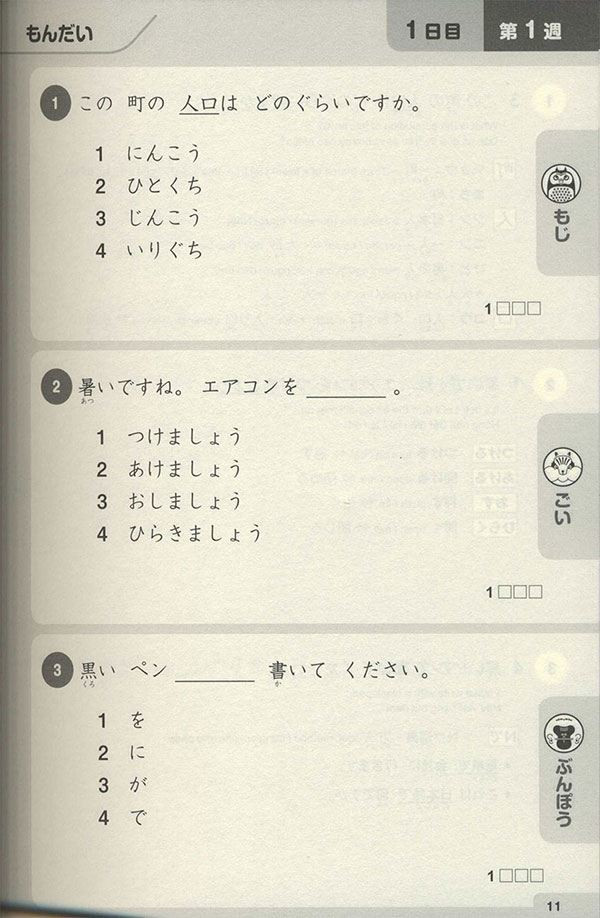 もんだい
1日目
第1週
1 この 町の 人口は どのぐらいですか。
1 にんこう
2 ひとくち
3 じんこう
4 いりぐち
1 □□□
もじ
2 暑いですね。 エアコンを ______ 。
あつ
1 つけましょう
2 あけましょう
3 おしましょう
4 ひらきましょう
1 □□□
ごい
3 黒い ペン ______ 書いて ください。
くろ か
1 を
2 に
3 が
4 で
1 □□□
ぶんぽう
11